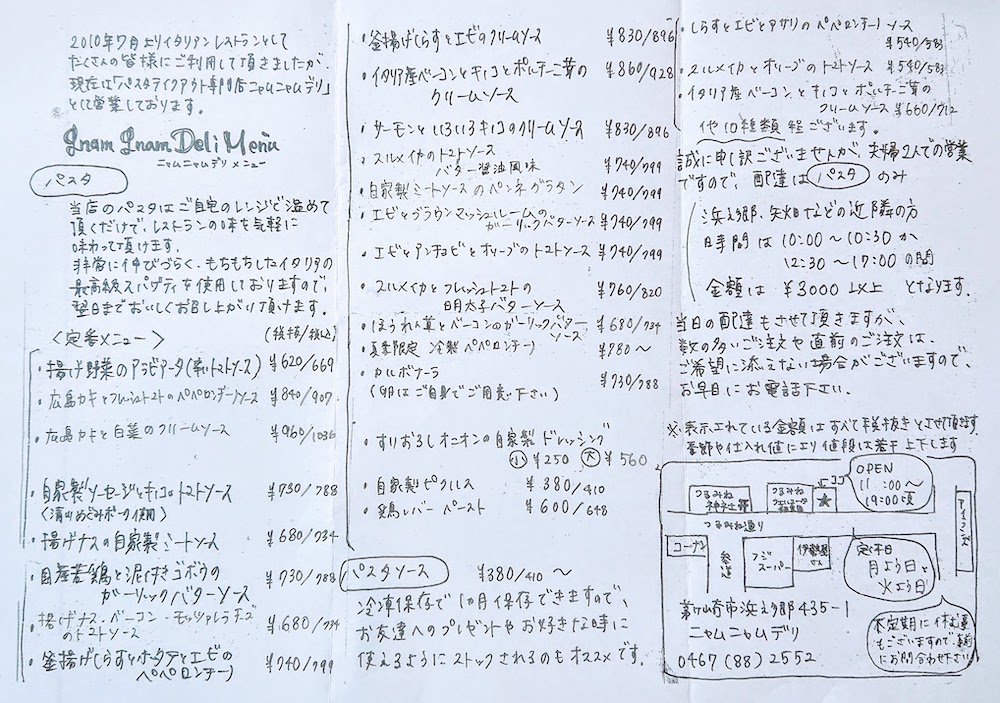 2010年7月よりイタリアンレストランとして
たくさんの皆様にご利用して頂きましたが、
現在は「パスタテイクアウト専門店ニャムニャムデリ」
として営業しております。
Gnam Gnam Deli Menu
ニャムニャムデリ メニュー
パスタ
当店のパスタはご自宅のレンジで温めて
頂くだけで、レストランの味を気軽に
味わって頂けます。
非常に伸びづらく、もちもちしたイタリアの
最高級スパゲティを使用しておりますので、
翌日までおいしくお召し上がり頂けます。
<定番メニュー> (税抜/税込)
・揚げ野菜のアラビアータ(辛いトマトソース) ¥620/669
・広島カキとフレッシュトマトのペペロンチーノソース ¥840/907
・広島カキと白菜のクリームソース ¥960/1036
・自家製ソーセージとキノコのトマトソース ¥730/788
(清川めぐみポーク使用)
・揚げナスの自家製ミートソース ¥680/734
・国産若鶏と泥付きゴボウの
ガーリックバターソース ¥730/788
・揚げナス・ベーコン・モッツァレラチーズ
のトマトソース ¥680/734
・釜揚げしらすとホタテとエビの
ペペロンチーノ ¥740/799
・釜揚げしらすとエビのクリームソース ¥830/896
・イタリア産ベーコンとキノコとポルチーニ茸の
クリームソース ¥860/928
・サーモンといろいろキノコのクリームソース ¥830/896
・スルメイカのトマトソース
バター醤油風味 ¥740/799
・自家製ミートソースのペンネグラタン ¥740/799
・エビとブラウンマッシュルームの
ガーリックバターソース ¥740/799
・エビとアンチョビとオリーブのトマトソース ¥740/799
・スルメイカとフレッシュトマトの
明太子バターソース ¥760/820
・ほうれん草とベーコンのガーリックバター
ソース ¥680/734
・夏季限定 冷製ペペロンチーノ ¥780〜
・カルボナーラ
(卵はご自身でご用意下さい) ¥730/788
・すりおろしオニオンの自家製ドレッシング
小 ¥250 大 ¥560
・自家製ピクルス ¥380/410
・鶏レバーペースト ¥600/648
パスタソース ¥380/410〜
冷凍保存で1カ月保存できますので、
お友達へのプレゼントやお好きな時に
使えるようにストックされるのもオススメです。
・しらすとエビとアサリのペペロンチーノソース
¥540/583
・スルメイカとオリーブのトマトソース ¥540/583
・イタリア産ベーコンとキノコとポルチーニ茸の
クリームソース ¥660/712
他10種類程ございます。
誠に申し訳ございませんが、夫婦2人での営業
ですので、配達はパスタのみ
浜之郷、矢畑などの近隣の方
日時間は10:00〜10:30か
12:30〜17:00の間
金額は¥3000以上となります。
当日の配達もさせて頂きますが、
数の多いご注文や直前のご注文は、
ご希望に添えない場合がございますので、
お早目にお電話下さい。
※表示されている金額はすべて税抜きとさせて頂きます
季節や仕入れ値により値段は若干上下します
OPEN
11:00〜
19:00頃
ココ
つるみね
神社
つるみね
つるみね通り
コーナン
参道
フジ
スーパー
伊勢屋
さん
定休日
月よう日と
火よう日
茅ヶ崎市浜之郷435-1
ニャムニャムデリ
0467(88)2552
不定期に休む事
もございますので、事前
にお問合わせ下さい